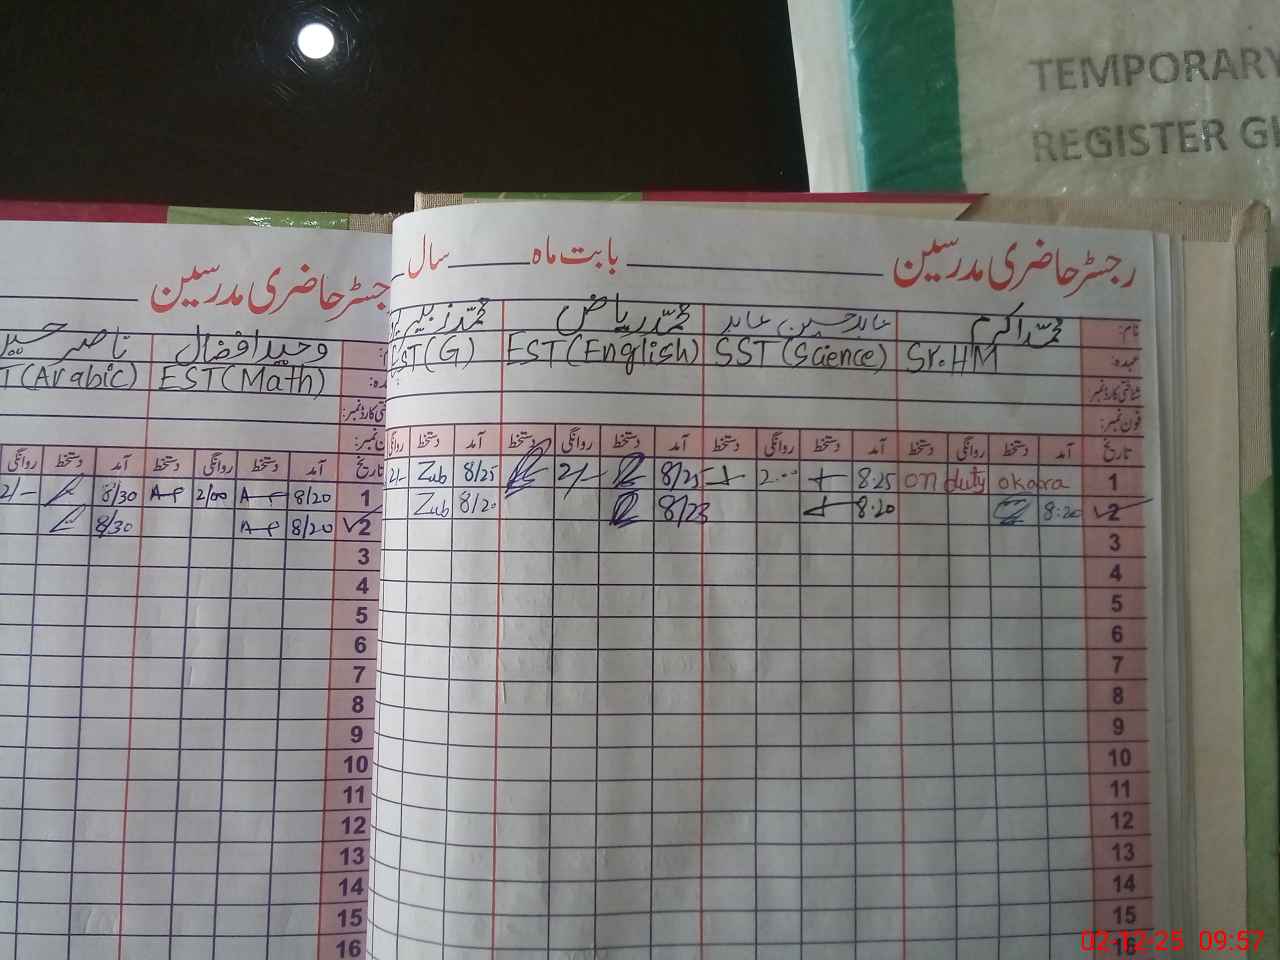 TEMPORARY
REGISTER GI
رجسٹر حاضری مدرسین بابت ماہ سال
نام: محمد اکرم عابد حسین عابد محمد ریاض محمد زبیر
عہدہ: Sr.HM SST (Science) EST (English) EST (G)
شناختی کارڈ نمبر:
فون نمبر:
تاریخ آمد دستخط روانگی دستخط آمد دستخط روانگی دستخط آمد دستخط روانگی دستخط آمد دستخط روانگی
1 on duty okara 8.25 2.00 8/25 2/- 8/25 Zub 2/-
2 8:20 8.20 8/23 8/20 Zub
3
4
5
6
7
8
9
10
11
12
13
14
15
16
رجسٹر حاضری مدرسین
وحید افضال ناصر
EST (Math) T (Arabic)
تاریخ آمد دستخط روانگی دستخط آمد دستخط روانگی
1 8/20 2/00 8/30 2/-
2 8/20 8/30
3
4
5
6
7
8
9
10
11
12
13
14
15
16
02-12-25 09:57